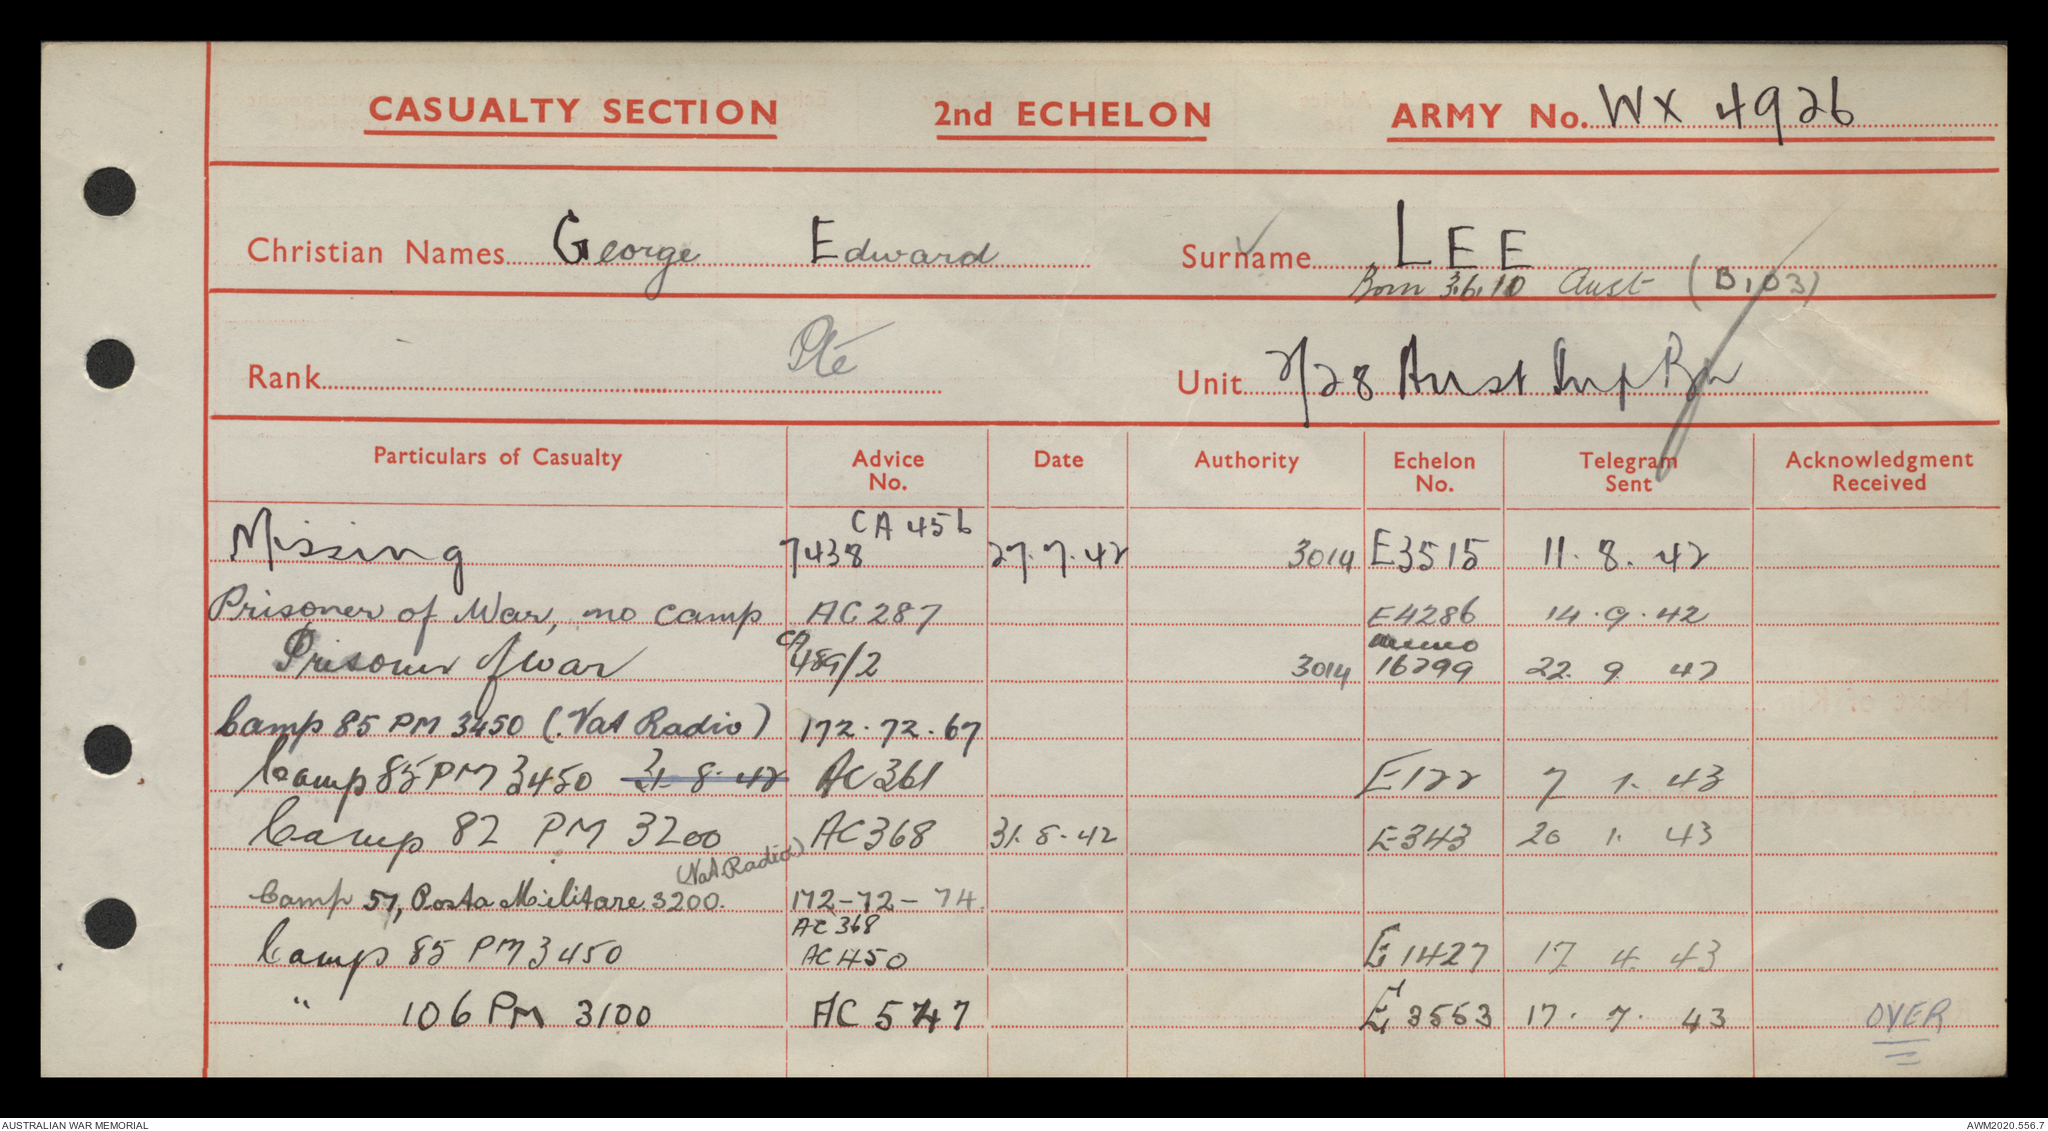 CASUALTY SECTION 2nd ECHELON ARMY No. WX 4926
Christian Names George Edward Surname LEE
Born 3.6.10 Aust (B103)
Rank Pte Unit 2/28 Aust Inf Bn
Particulars of Casualty Advice No. Date Authority Echelon No. Telegram Sent Acknowledgment Received
CA 456
Missing 7438 27.7.42 3014 E3515 11. 8. 42
Prisoner of War, no camp AC 287 E4286 14.9.42
CA memo
Prisoner of War 489/2 3014 16799 22. 9. 42
Camp 85 PM 3450 (Vat Radio) 172.72.67
Camp 85 PM 3450 31-8-42 AC 361 E122 7 1. 43
Camp 82 PM 3200 AC 368 31.8.42 E343 20 1. 43
(Vat. Radio)
Camp 57, Posta Militare 3200. 172-72-74.
AC 368
Camp 85 PM 3450 AC 450 E1427 17 4. 43
" 106 PM 3100 AC 547 E 3553 17. 7. 43 OVER
AUSTRALIAN WAR MEMORIAL AWM2020.556.7